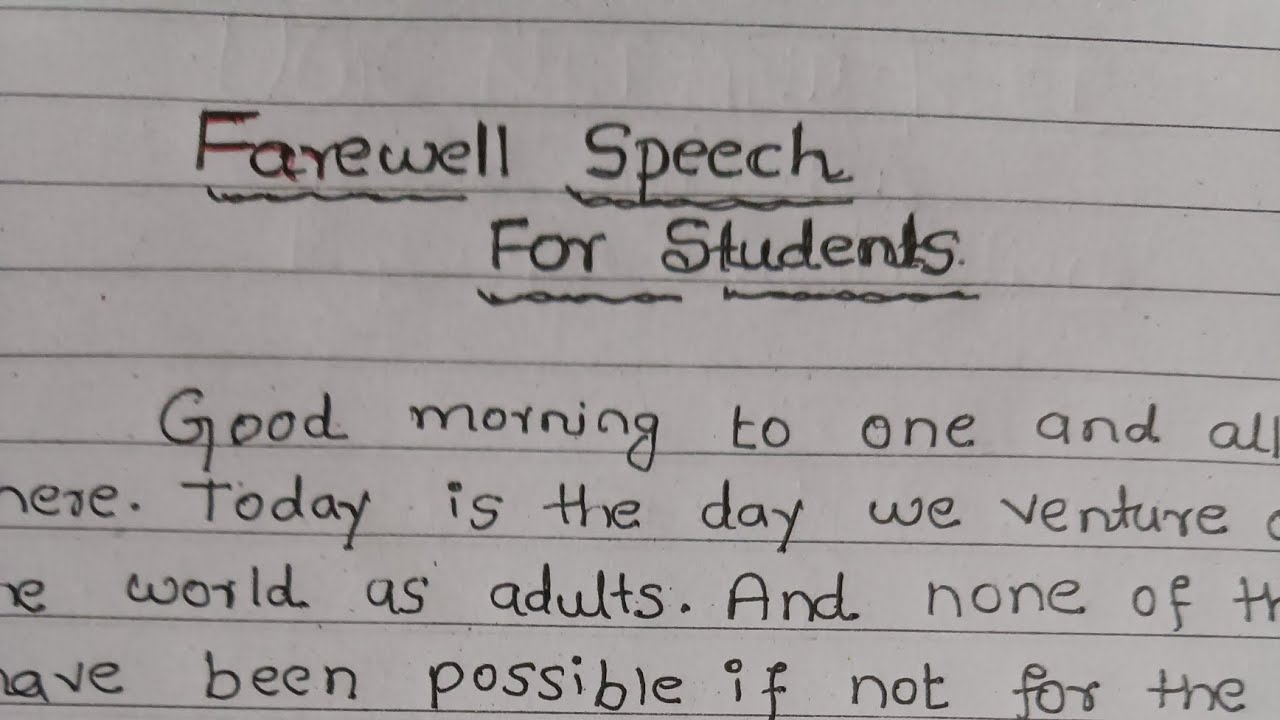 Farewell Speech
For Students.
Good morning to one and all
here. Today is the day we venture
world as adults. And none of
have been possible if not for the